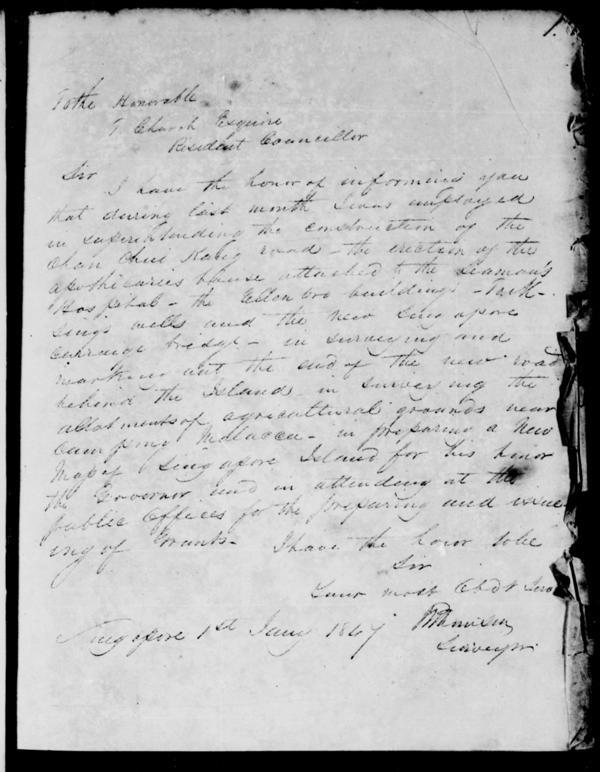 1.
To the Honorable
T Church Esquire
Resident Councillor
Sir
I have the honor of informing you
that during last month I was employed
in superintending the construction of the
Chan Chui Kang road – the erection of the
apothecaries house attached to the Seaman's
Hospital – the Ellenbro buildings –
sing's wells and the new Singapore
carriage bridge – in surveying and
marking out the end of the new road
behind the Island in surveying the
allotments of agricultural grounds near
Campong Malacca – in preparing a New
Map of Singapore Island for his honor
the Governor and in attending at the
public Offices for the preparing and issue
ing of Grants – I have the honor to be
Sir
Your most Obdt Serv
Singapore 1st Jany 1847
Surveyor